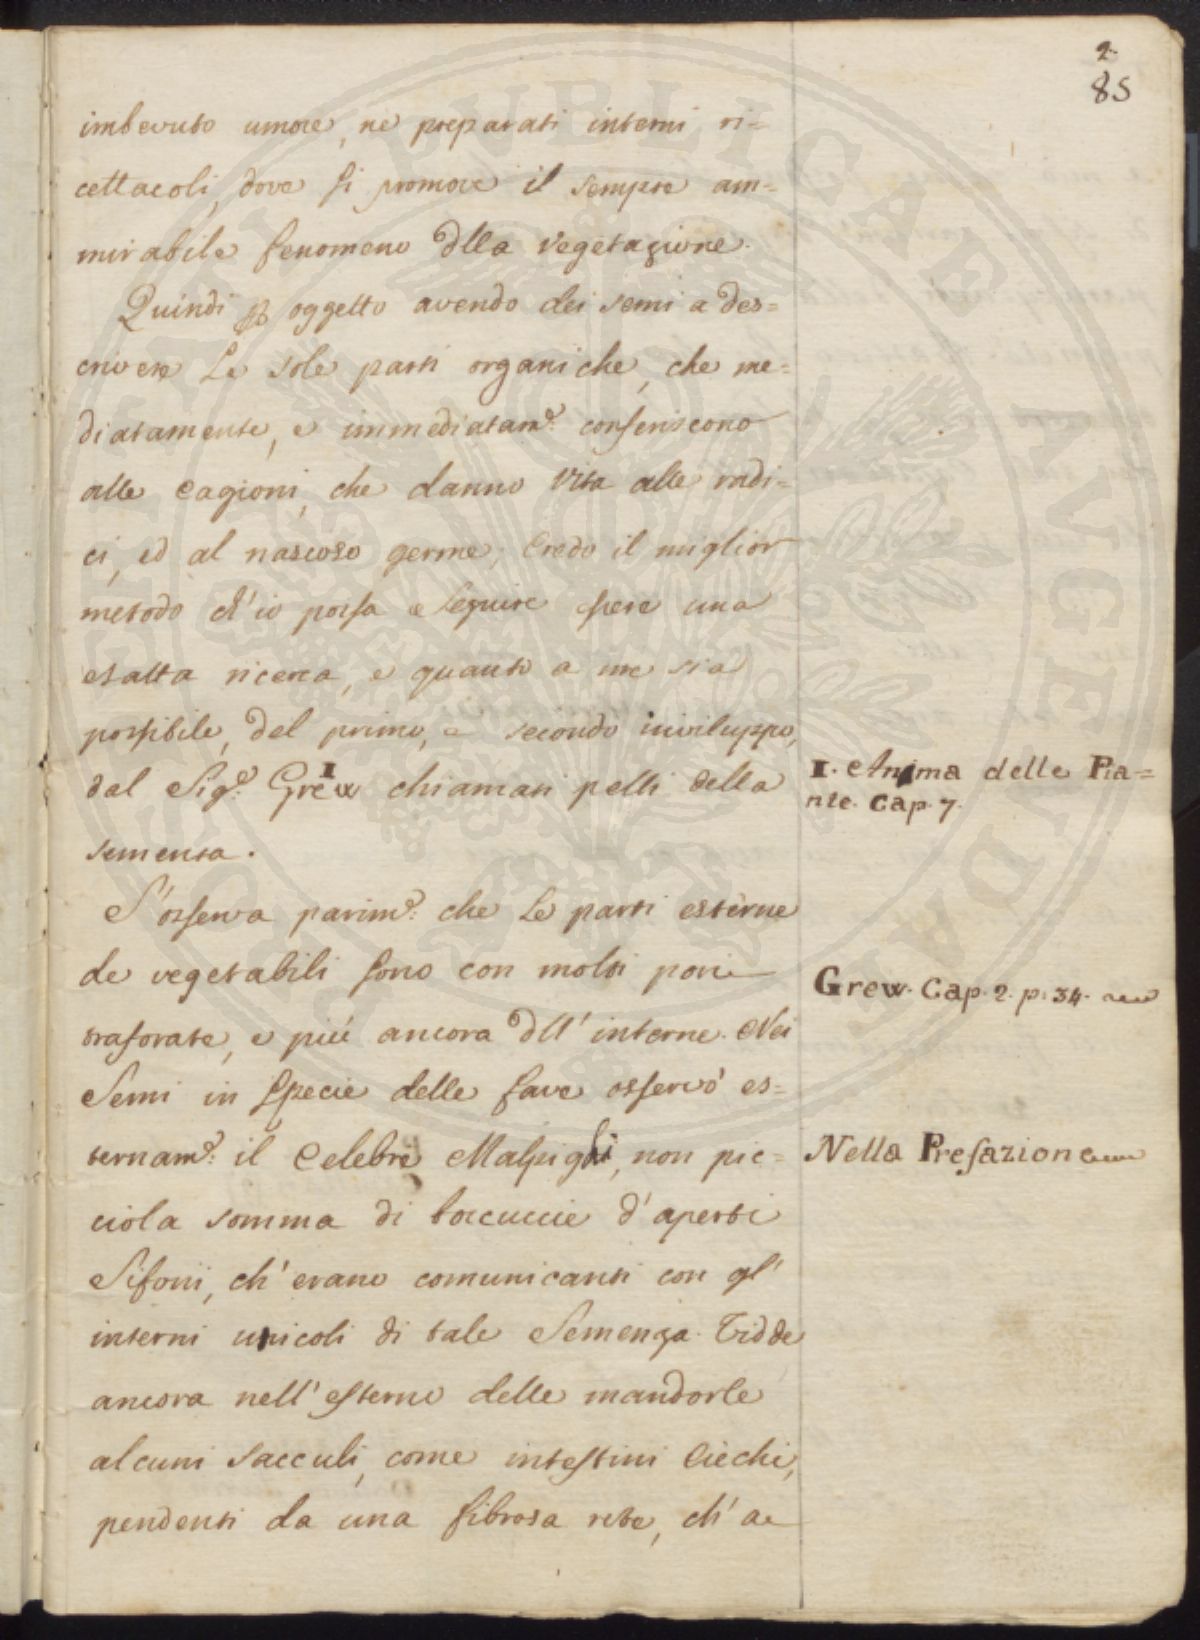 2.
85
imbevuto umore, ne preparati interni ri=
cettacoli, dove si promove il sempre am=
mirabile fenomeno dlla vegetazione.
Quindi p oggetto avendo dei semi a des=
crivere Le sole parti organiche, che me=
diatamente, e immediatam.e conferiscono
alle cagioni, che danno vita alle radi=
ci, ed al nascoso germe; Credo il miglior
metodo ch'io possa eseguire essere una
esatta ricerca, e quanto a me sia
possibile, del primo, e secondo inviluppo,
dal Sig.e Grew 1 chiamati pelli della
semenza.
1. Anima delle Pia=
nte. Cap. 7.
S'osserva parim.e: che Le parti esterne
de vegetabili sono con molti pori
traforate, e più ancora dll' interne. Nei
Grew. Cap. 2. p: 34.
Semi in specie delle fave osservò es=
ternam.e: il Celebre Malpighi, non pic=
Nella Prefazione
ciola somma di boccuccie d'aperti
Sifoni, ch'erano comunicanti con gl'
interni utricoli di tale Semenza. Vidde
ancora nell'esterno delle mandorle
alcuni sacculi, come intestini Ciechi,
pendenti da una fibrosa rete, ch'a
BVBLICAE AVGENDAE